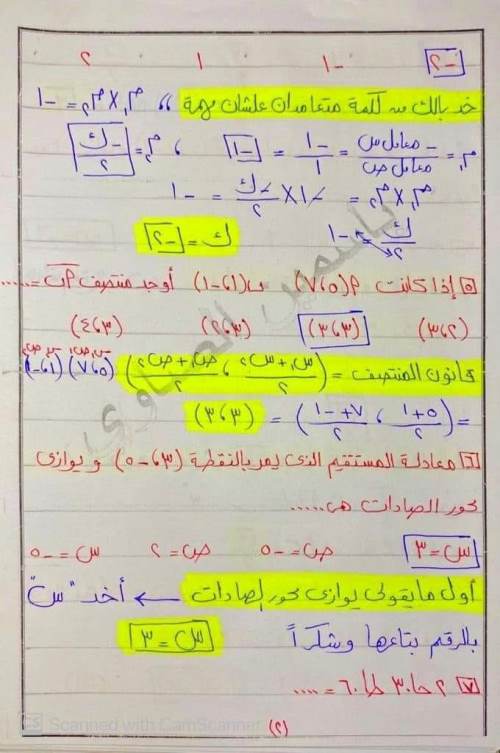 -٢ -١ ١ ٢
خد بالك من كلمة متعامدان علشان مهمة ،، م١ × م٢ = -١
م١ = -معامل س / معامل ص = -١/١ = -١ ، م٢ = -ك/٢
م١ × م٢ = -١ × -ك/٢ = -١
ك/٢ = -١ ك = -٢
٥ إذا كانت P(٥،٧) ب(١،-١) أوجد منتصف Pب = .....
(٢،٣) (٣،٣) (٣،٢) (٣،٤)
قانون المنتصف = (س١+س٢/٢ ، ص١+ص٢/٢) س١ ص١ (٥،٧) س٢ ص٢ (١،-١)
= (٥+١/٢ ، ٧+-١/٢) = (٣،٣)
٦ معادلة المستقيم الذى يمر بالنقطة (٣،-٥) و يوازى
محور الصادات هى .....
س=٣ ص=-٥ ص=٢ س=-٥
أول ما يقولى يوازى محور الصادات ← أخد "س"
بالرقم بتاعها وشكراً س=٣
٧ ٢ حا٣٠ طا٦٠ = ....
(٢)
ياسمين
CS Scanned with CamScanner